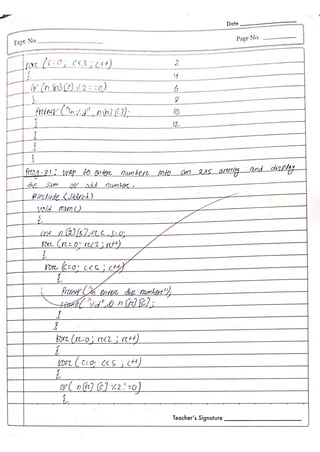 Date
Expt. No.
Page No.
for (c=0; c<3; c++) 2
{ 4
if (n[r][c] %2==0) 6
{ 8
printf ("\n %d", n[r][c]); 10
} 12
}
}
}
Prog-31: WAP to enter numbers into an 2x5 array and display
the sum of odd number.
#include <stdio.h>
void main()
{
int n[2][5], r, c, s=0;
for (r=0; r<2; r++)
{
for (c=0; c<5; c++)
{
printf ("\n enter the number");
scanf ("%d", & n[r][c]);
}
}
for (r=0; r<2; r++)
{
for (c=0; c<5; c++)
{
if (n[r][c] %2!=0)
{
Teacher's Signature